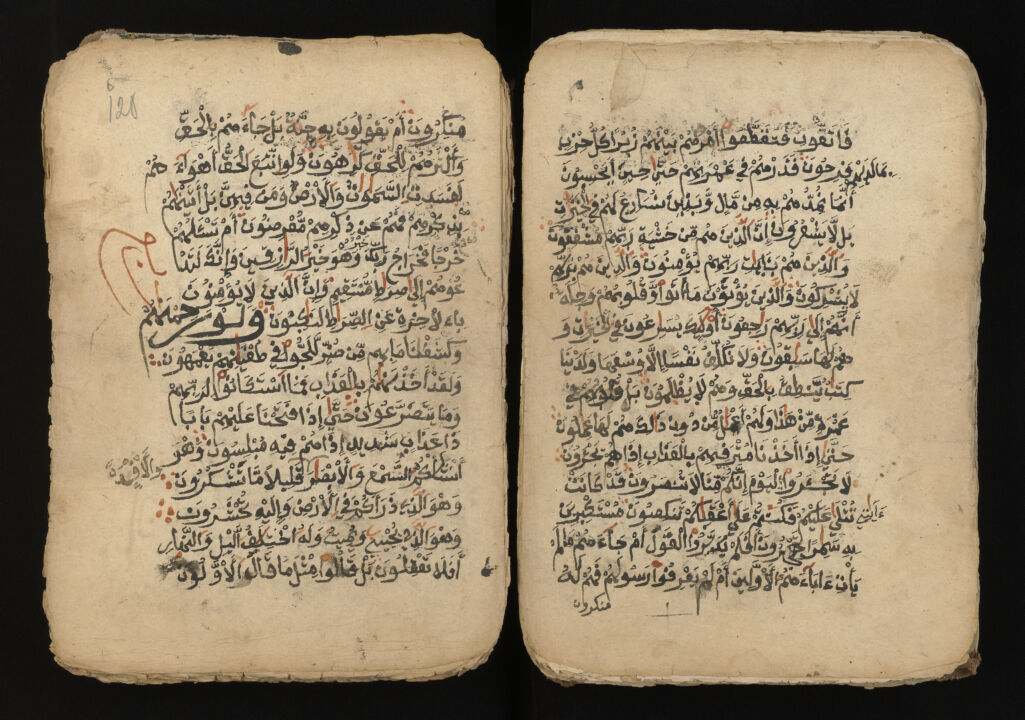 فَاتَّقُونِ فَتَقَطَّعُوا أَمْرَهُمْ بَيْنَهُمْ زُبُرًا كُلُّ حِزْبٍ
بِمَا لَدَيْهِمْ فَرِحُونَ فَذَرْهُمْ فِي غَمْرَتِهِمْ حَتَّىٰ حِينٍ أَيَحْسِبُونَ
أَنَّمَا نُمِدُّهُمْ بِهِ مِن مَّالٍ وَبَنِينَ نُسَارِعُ لَهُمْ فِي الْخَيْرَاتِ
بَل لَّا يَشْعُرُونَ إِنَّ الَّذِينَ هُم مِّنْ خَشْيَةِ رَبِّهِمْ مُشْفِقُونَ
وَالَّذِينَ هُمْ بِـَٔايَاتِ رَبِّهِمْ يُؤْمِنُونَ وَالَّذِينَ هُمْ بِرَبِّهِمْ
لَا يُشْرِكُونَ وَالَّذِينَ يُؤْتُونَ مَا ءَاتَوا وَّقُلُوبُهُمْ وَجِلَةٌ
أَنَّهُمْ إِلَىٰ رَبِّهِمْ رَاجِعُونَ أُولَٰئِكَ يُسَارِعُونَ فِي الْخَيْرَاتِ وَ
هُمْ لَهَا سَابِقُونَ وَلَا نُكَلِّفُ نَفْسًا إِلَّا وُسْعَهَا وَلَدَيْنَا
كِتَابٌ يَنطِقُ بِالْحَقِّ وَهُمْ لَا يُظْلَمُونَ بَلْ قُلُوبُهُمْ فِي
غَمْرَةٍ مِّنْ هَٰذَا وَلَهُمْ أَعْمَالٌ مِّن دُونِ ذَٰلِكَ هُمْ لَهَا عَامِلُونَ
حَتَّىٰ إِذَا أَخَذْنَا مُتْرَفِيهِمْ بِالْعَذَابِ إِذَا هُمْ يَجْـَٔرُونَ
لَا تَجْـَٔرُوا الْيَوْمَ إِنَّكُم مِّنَّا لَا تُنصَرُونَ قَدْ كَانَتْ
ءَايَاتِي تُتْلَىٰ عَلَيْكُمْ فَكُنتُمْ عَلَىٰ أَعْقَابِكُمْ تَنكِصُونَ مُسْتَكْبِرِينَ
بِهِ سَامِرًا تُهْجِرُونَ أَفَلَمْ يَدَّبَّرُوا الْقَوْلَ أَمْ جَاءَهُم مَّا لَمْ
يَأْتِ ءَابَاءَهُمُ الْأَوَّلِينَ أَمْ لَمْ يَعْرِفُوا رَسُولَهُمْ فَهُمْ لَهُ
منكرون
128
مُنكِرُونَ أَمْ يَقُولُونَ بِهِ جِنَّةٌ بَلْ جَاءَهُمْ بِالْحَقِّ
وَأَكْثَرُهُمْ لِلْحَقِّ كَارِهُونَ وَلَوِ اتَّبَعَ الْحَقُّ أَهْوَاءَهُمْ
لَفَسَدَتِ السَّمَاوَاتُ وَالْأَرْضُ وَمَن فِيهِنَّ بَلْ أَتَيْنَاهُمْ
بِذِكْرِهِمْ فَهُمْ عَن ذِكْرِهِمْ مُّعْرِضُونَ أَمْ تَسْـَٔلُهُمْ
خَرْجًا فَخَرَاجُ رَبِّكَ خَيْرٌ وَهُوَ خَيْرُ الرَّازِقِينَ وَإِنَّكَ لَتَدْ
عُوهُمْ إِلَىٰ صِرَاطٍ مُّسْتَقِيمٍ وَإِنَّ الَّذِينَ لَا يُؤْمِنُونَ
بِالْآخِرَةِ عَنِ الصِّرَاطِ لَنَاكِبُونَ وَلَوْ رَحِمْنَاهُمْ
وَكَشَفْنَا مَا بِهِمْ مِّن ضُرٍّ لَّلَجُّوا فِي طُغْيَانِهِمْ يَعْمَهُونَ
وَلَقَدْ أَخَذْنَاهُمْ بِالْعَذَابِ فَمَا اسْتَكَانُوا لِرَبِّهِمْ
وَمَا يَتَضَرَّعُونَ حَتَّىٰ إِذَا فَتَحْنَا عَلَيْهِمْ بَابًا
ذَا عَذَابٍ شَدِيدٍ إِذَا هُمْ فِيهِ مُبْلِسُونَ وَهُوَ الَّذِي
أَنشَأَ لَكُمُ السَّمْعَ وَالْأَبْصَارَ وَالْأَفْـِٔدَةَ قَلِيلًا مَّا تَشْكُرُونَ
وَهُوَ الَّذِي ذَرَأَكُمْ فِي الْأَرْضِ وَإِلَيْهِ تُحْشَرُونَ
وَهُوَ الَّذِي يُحْيِي وَيُمِيتُ وَلَهُ اخْتِلَافُ الَّيْلِ وَالنَّهَارِ
أَفَلَا تَعْقِلُونَ بَلْ قَالُوا مِثْلَ مَا قَالَ الْأَوَّلُونَ